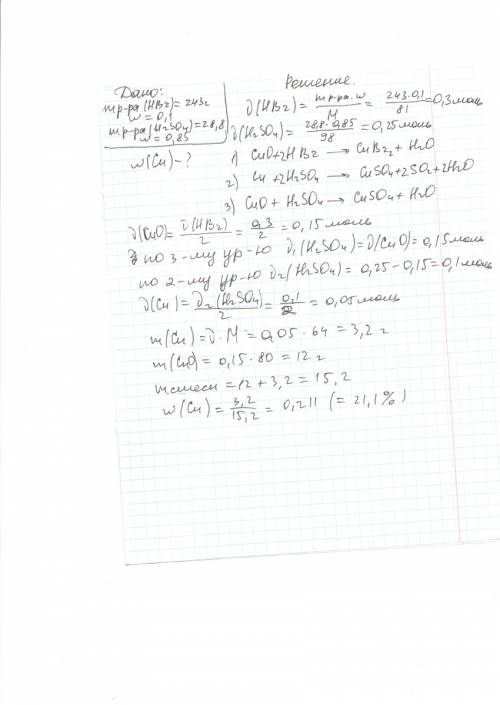 Дано:
mр-ра(HBr)=243г
w=0,1
mр-ра(H2SO4)=28,8
w=0,85
w(Cu)-?
Решение.
ν(HBr)=mр-ра·w/M=243·0,1/81=0,3моль
ν(H2SO4)=28,8·0,85/98=0,25моль
1) CuO+2HBr → CuBr2+H2O
2) Cu+2H2SO4 → CuSO4+2SO2+2H2O
3) CuO+H2SO4 → CuSO4+H2O
ν(CuO)=ν(HBr)/2=0,3/2=0,15моль
по 3-му ур-ю ν1(H2SO4)=ν(CuO)=0,15моль
по 2-му ур-ю ν2(H2SO4)=0,25-0,15=0,1моль
ν(Cu)=ν2(H2SO4)/2=0,1/2=0,05моль
m(Cu)=ν·M=0,05·64=3,2г
m(CuO)=0,15·80=12г
mсмеси=12+3,2=15,2
w(Cu)=3,2/15,2=0,211 (=21,1%)